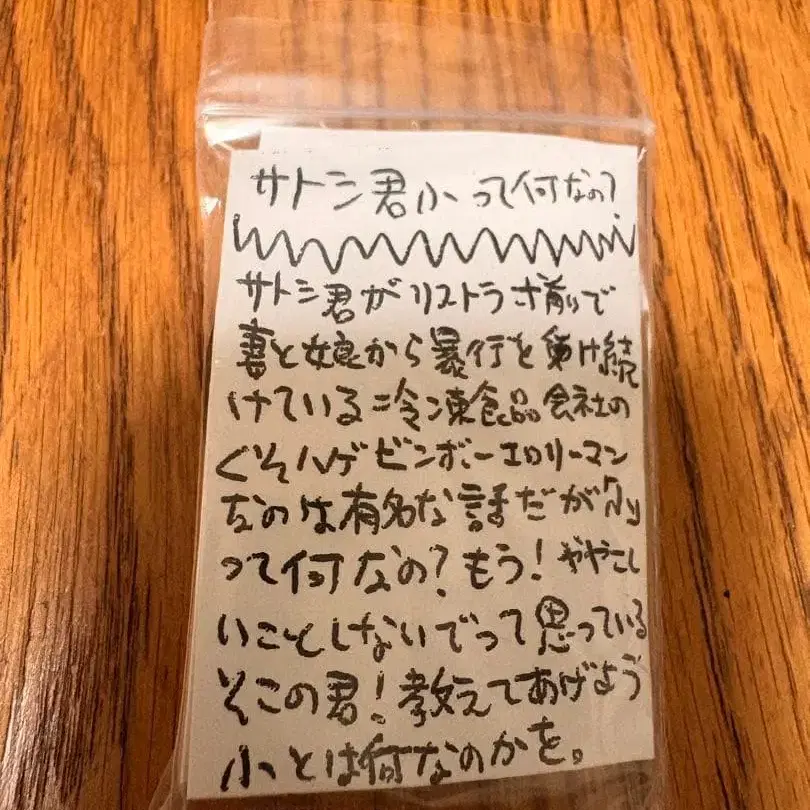 サトシ君小って何なの?
サトシ君がリストラ寸前で
妻と娘から暴行を受け続
けている冷凍食品会社の
くそハゲビンボーエロリーマン
なのは有名な話だが「小」
って何なの?もう!ややこし
いことしないでって思っている
そこの君!教えてあげよう
小とは何なのかを。